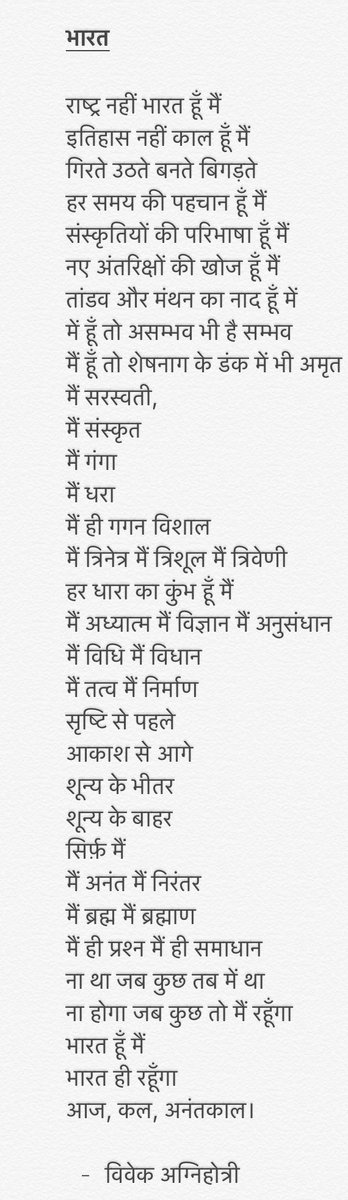 भारत
राष्ट्र नहीं भारत हूँ मैं
इतिहास नहीं काल हूँ मैं
गिरते उठते बनते बिगड़ते
हर समय की पहचान हूँ मैं
संस्कृतियों की परिभाषा हूँ मैं
नए अंतरिक्षों की खोज हूँ मैं
तांडव और मंथन का नाद हूँ में
में हूँ तो असम्भव भी है सम्भव
मैं हूँ तो शेषनाग के डंक में भी अमृत
मैं सरस्वती,
मैं संस्कृत
मैं गंगा
मैं धरा
मैं ही गगन विशाल
मैं त्रिनेत्र मैं त्रिशूल मैं त्रिवेणी
हर धारा का कुंभ हूँ मैं
मैं अध्यात्म मैं विज्ञान मैं अनुसंधान
मैं विधि मैं विधान
मैं तत्व मैं निर्माण
सृष्टि से पहले
आकाश से आगे
शून्य के भीतर
शून्य के बाहर
सिर्फ़ मैं
मैं अनंत मैं निरंतर
मैं ब्रह्म मैं ब्रह्माण
मैं ही प्रश्न मैं ही समाधान
ना था जब कुछ तब में था
ना होगा जब कुछ तो मैं रहूँगा
भारत हूँ मैं
भारत ही रहूँगा
आज, कल, अनंतकाल।
- विवेक अग्निहोत्री